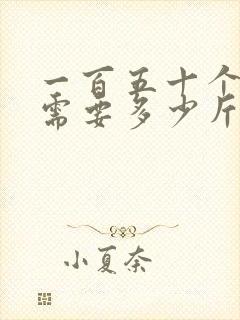 一百五十个
需要多少片
小夏奈